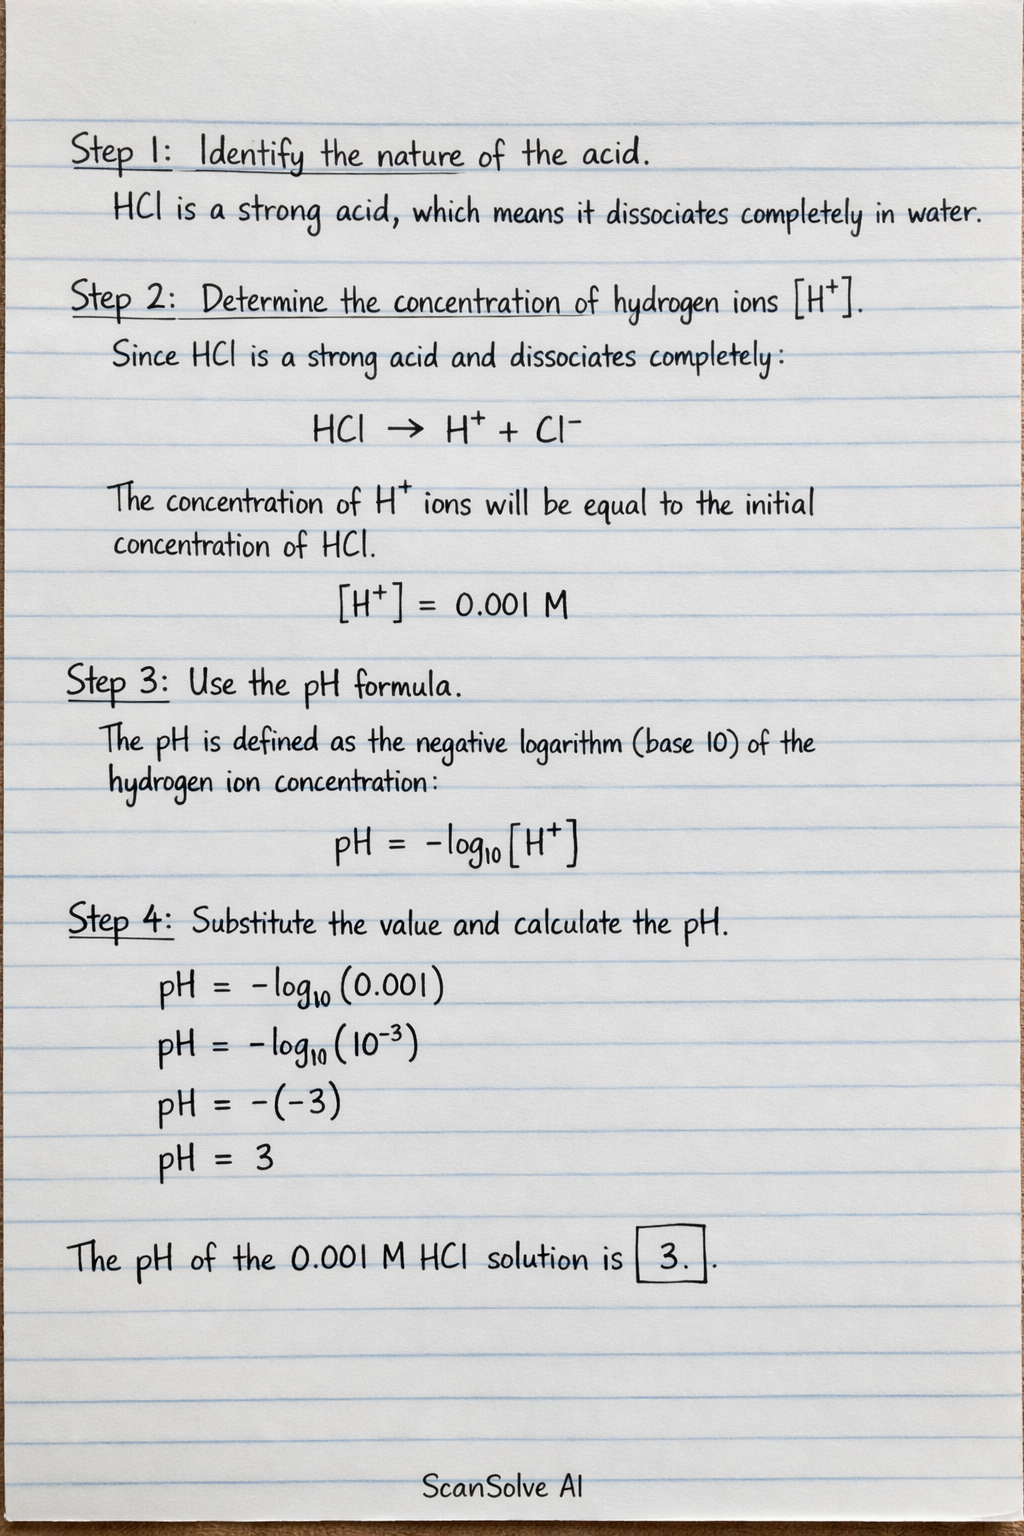 Step 1: Identify the nature of the acid.
HCl is a strong acid, which means it dissociates completely in water.
Step 2: Determine the concentration of hydrogen ions [H⁺].
Since HCl is a strong acid and dissociates completely:
HCl → H⁺ + Cl⁻
The concentration of H⁺ ions will be equal to the initial
concentration of HCl.
[H⁺] = 0.001 M
Step 3: Use the pH formula.
The pH is defined as the negative logarithm (base 10) of the
hydrogen ion concentration:
pH = -log₁₀[H⁺]
Step 4: Substitute the value and calculate the pH.
pH = -log₁₀(0.001)
pH = -log₁₀(10⁻³)
pH = -(-3)
pH = 3
The pH of the 0.001 M HCl solution is 3..
ScanSolve AI